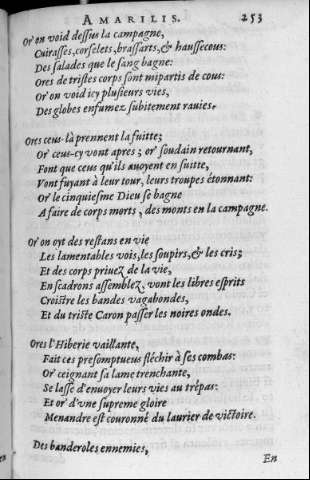 AMARILIS. 253
Or' on void dessus la campagne,
Cuirasses, corselets, brassarts, & haussecous:
Des salades que le sang bagne:
Ores de tristes corps sont mipartis de cous:
Or' on void icy plusieurs vies,
Des globes enfumez subitement ravies.
Ores ceus-là prennent la fuitte;
Or' ceus-cy vont apres; or' soudain retournant,
Font que ceus qu'ils avoyent en fuitte,
Vont fuyant à leur tour, leurs troupes étonnant:
Or' le cinquiesme Dieu se bagne
A faire de corps morts, des monts en la campagne.
Or' on oyt des restans en vie
Les lamentables vois, les soupirs, & les cris;
Et des corps privez de la vie,
En scadrons assemblez, vont les libres esprits
Croistre les bandes vagabondes,
Et du triste Caron passer les noires ondes.
Ores l'Hiberie vaillante,
Fait ces presomptueus fléchir à ses combas:
Or' ceignant sa lame trenchante,
Se lasse d'envoyer leurs vies au trépas:
Et or' d'vne supreme gloire
Menandre est couronné du laurier de victoire.
Des banderoles ennemies,
En